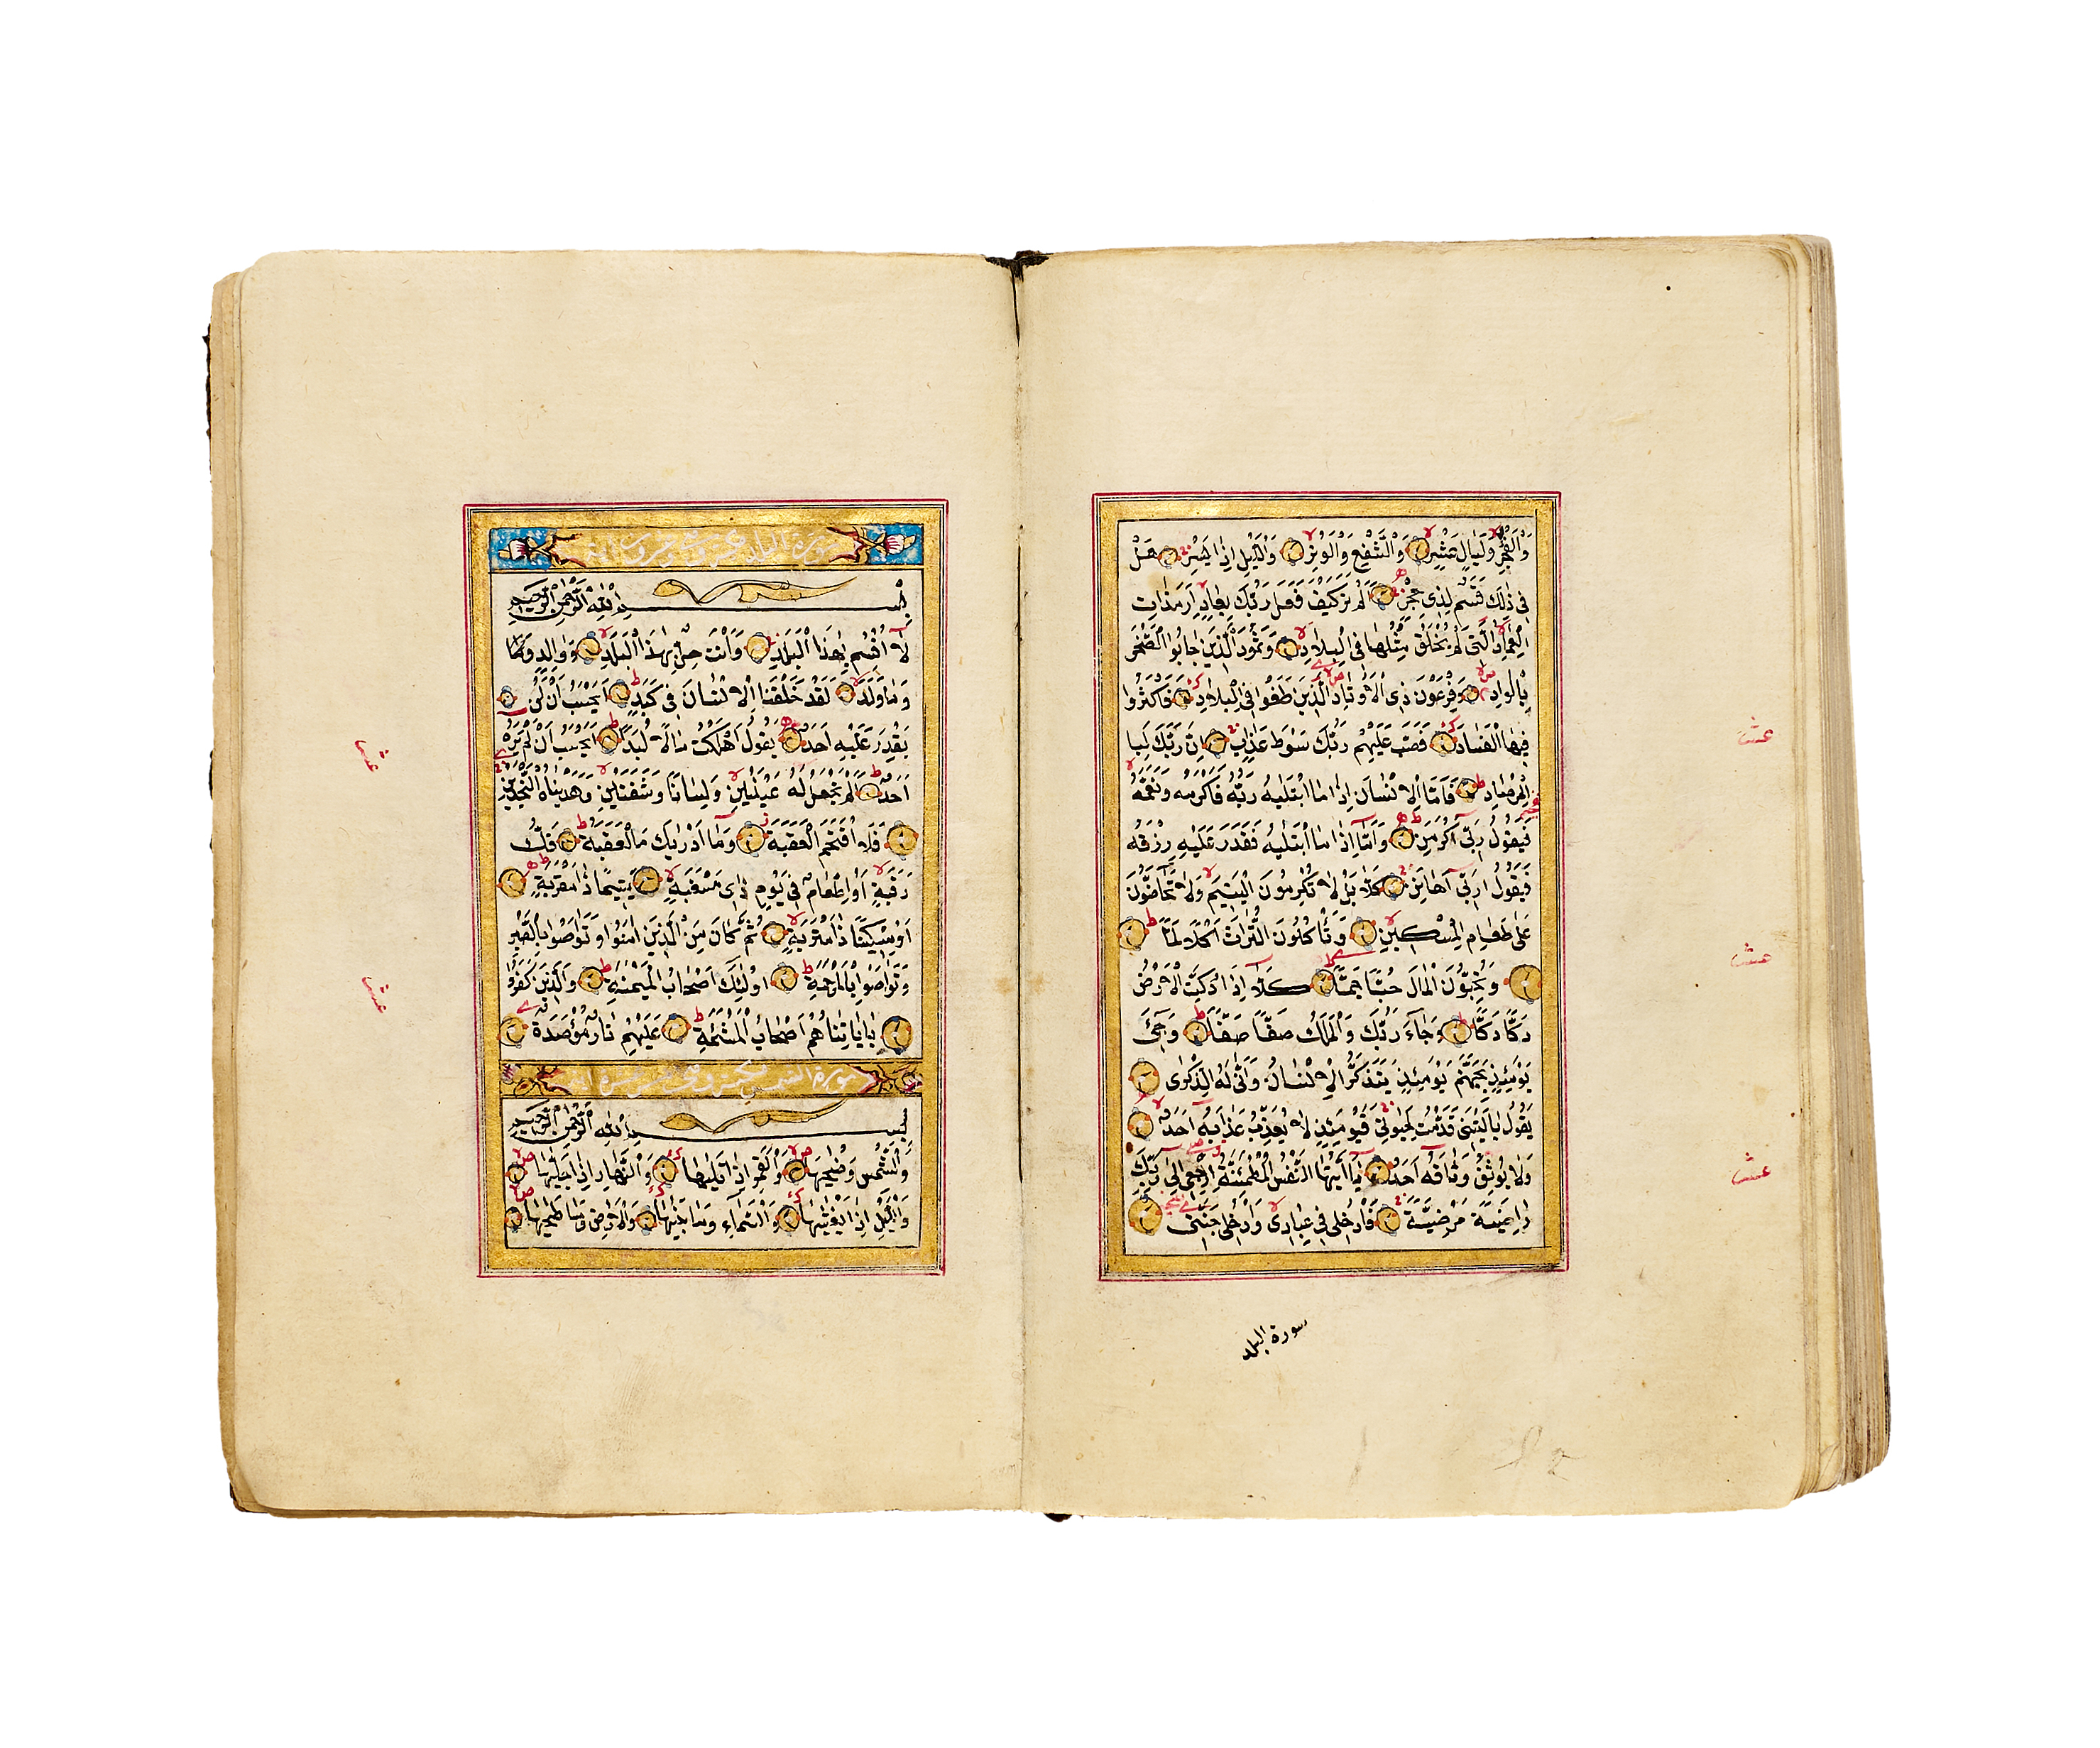 وَالْفَجْرِ وَلَيَالٍ عَشْرٍ وَالشَّفْعِ وَالْوَتْرِ وَالَّيْلِ اِذَا يَسْرِ هَلْ
فِي ذٰلِكَ قَسَمٌ لِذِي حِجْرٍ اَلَمْ تَرَ كَيْفَ فَعَلَ رَبُّكَ بِعَادٍ اِرَمَ ذَاتِ
الْعِمَادِ الَّتِي لَمْ يُخْلَقْ مِثْلُهَا فِي الْبِلَادِ وَثَمُودَ الَّذِينَ جَابُوا الصَّخْرَ
بِالْوَادِ وَفِرْعَوْنَ ذِي الْاَوْتَادِ الَّذِينَ طَغَوْا فِي الْبِلَادِ فَاَكْثَرُوا
فِيهَا الْفَسَادَ فَصَبَّ عَلَيْهِمْ رَبُّكَ سَوْطَ عَذَابٍ اِنَّ رَبَّكَ لَبِا
لْمِرْصَادِ فَاَمَّا الْاِنْسَانُ اِذَا مَا ابْتَلٰيهُ رَبُّهُ فَاَكْرَمَهُ وَنَعَّمَهُ
فَيَقُولُ رَبِّي اَكْرَمَنِ وَاَمَّا اِذَا مَا ابْتَلٰيهُ فَقَدَرَ عَلَيْهِ رِزْقَهُ
فَيَقُولُ رَبِّي اَهَانَنِ كَلَّا بَلْ لَا تُكْرِمُونَ الْيَتِيمَ وَلَا تَحَاضُّونَ
عَلٰى طَعَامِ الْمِسْكِينِ وَتَأْكُلُونَ التُّرَاثَ اَكْلًا لَمًّا
وَتُحِبُّونَ الْمَالَ حُبًّا جَمًّا كَلَّا اِذَا دُكَّتِ الْاَرْضُ
دَكًّا دَكًّا وَجَاءَ رَبُّكَ وَالْمَلَكُ صَفًّا صَفًّا وَجِيءَ
يَوْمَئِذٍ بِجَهَنَّمَ يَوْمَئِذٍ يَتَذَكَّرُ الْاِنْسَانُ وَاَنّٰى لَهُ الذِّكْرٰى
يَقُولُ يَا لَيْتَنِي قَدَّمْتُ لِحَيٰوتِي فَيَوْمَئِذٍ لَا يُعَذِّبُ عَذَابَهُ اَحَدٌ
وَلَا يُوثِقُ وَثَاقَهُ اَحَدٌ يَا اَيَّتُهَا النَّفْسُ الْمُطْمَئِنَّةُ ارْجِعِي اِلٰى رَبِّكِ
رَاضِيَةً مَرْضِيَّةً فَادْخُلِي فِي عِبَادِي وَادْخُلِي جَنَّتِي
عشـ
عشـ
عشـ
سورة البلد
سورة البلد
بِسْمِ اللّٰهِ الرَّحْمٰنِ الرَّحِيمِ
لَا اُقْسِمُ بِهٰذَا الْبَلَدِ وَاَنْتَ حِلٌّ بِهٰذَا الْبَلَدِ وَوَالِدٍ وَمَا
وَمَا وَلَدَ لَقَدْ خَلَقْنَا الْاِنْسَانَ فِي كَبَدٍ اَيَحْسَبُ اَنْ لَنْ
يَقْدِرَ عَلَيْهِ اَحَدٌ يَقُولُ اَهْلَكْتُ مَالًا لُبَدًا اَيَحْسَبُ اَنْ لَمْ يَرَهُ
اَحَدٌ اَلَمْ نَجْعَلْ لَهُ عَيْنَيْنِ وَلِسَانًا وَشَفَتَيْنِ وَهَدَيْنَاهُ النَّجْدَيْنِ
فَلَا اقْتَحَمَ الْعَقَبَةَ وَمَا اَدْرٰيكَ مَا الْعَقَبَةُ فَكُّ
رَقَبَةٍ اَوْ اِطْعَامٌ فِي يَوْمٍ ذِي مَسْغَبَةٍ يَتِيمًا ذَا مَقْرَبَةٍ
اَوْ مِسْكِينًا ذَا مَتْرَبَةٍ ثُمَّ كَانَ مِنَ الَّذِينَ اٰمَنُوا وَتَوَاصَوْا بِالصَّبْرِ
وَتَوَاصَوْا بِالْمَرْحَمَةِ اُولٰئِكَ اَصْحَابُ الْمَيْمَنَةِ وَالَّذِينَ كَفَرُوا
بِاٰيَاتِنَا هُمْ اَصْحَابُ الْمَشْئَمَةِ عَلَيْهِمْ نَارٌ مُؤْصَدَةٌ
سورة الشمس
بِسْمِ اللّٰهِ الرَّحْمٰنِ الرَّحِيمِ
وَالشَّمْسِ وَضُحٰيهَا وَالْقَمَرِ اِذَا تَلٰيهَا وَالنَّهَارِ اِذَا جَلّٰيهَا
وَالَّيْلِ اِذَا يَغْشٰيهَا وَالسَّمَاءِ وَمَا بَنٰيهَا وَالْاَرْضِ وَمَا طَحٰيهَا
عشـ
عشـ